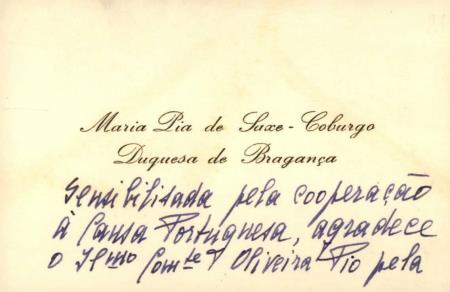 Maria Pia de Saxe-Coburgo
Duquesa de Bragança
Sensibilisada pela cooperação
à Causa Portuguesa, agradece
o Ilmo Comte Oliveira Pio pela